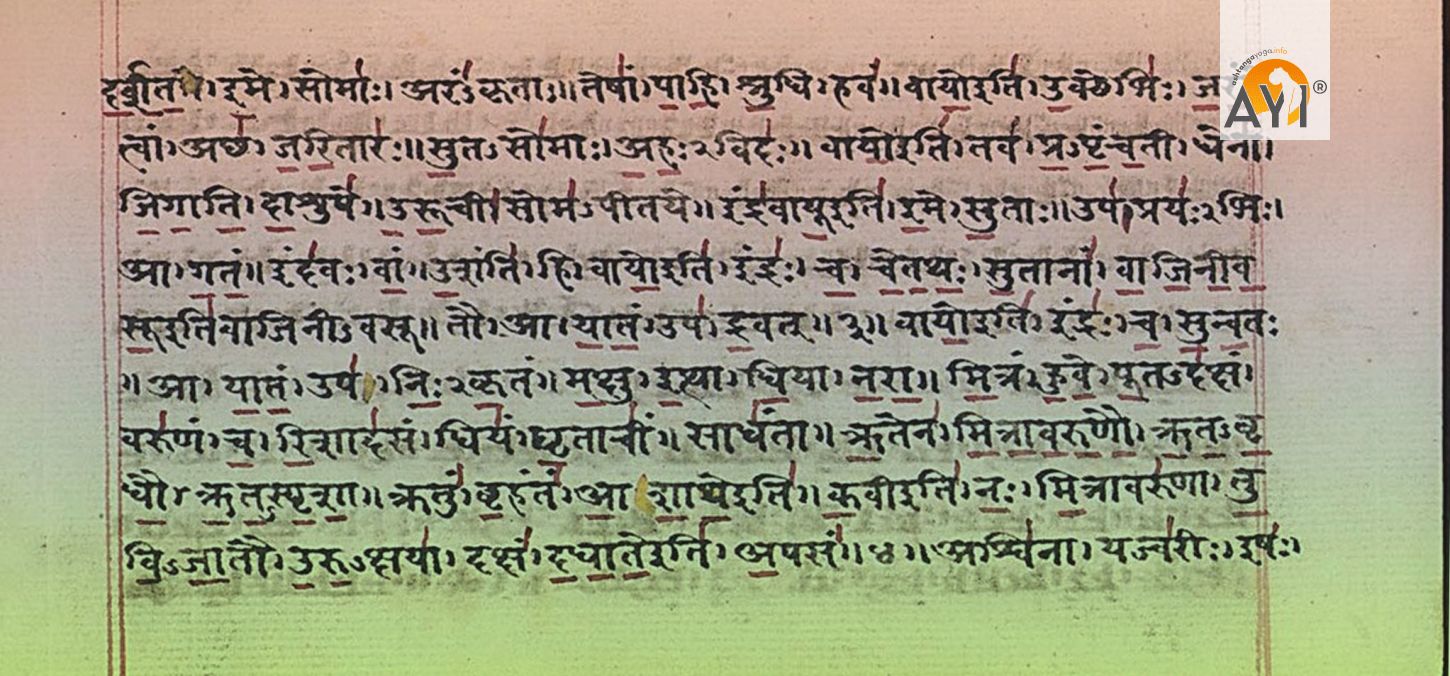 दर्शत। इमे। सोमाः। अरंऽकृताः॥ तेषां। पाहि। श्रुधि। हवं॥ वायोइति। उक्थेभिः। ज
त्वां। अछ। जरितारः॥ सुतऽसोमाः। अहःऽविदः॥ वायोइति। तव। प्रऽपृंचती। धेना।
जिगाति। दाशुषे॥ उरूची। सोमऽपीतये॥ इंद्रवायूइति। इमे। सुताः॥ उप। प्रयःऽभिः।
आ। गतं॥ इंदवः। वां॥ उशंति। हि। वायोइति। इंद्रः। च। चेतथः। सुतानां। वाजिनीव
सूइतिवाजिनीऽवसू॥ तौ। आ। यातं। उप। द्रवत्॥ ३॥ वायोइति। इंद्रः। च। सुन्वतः
॥ आ। यातं। उप। निःऽकृतं॥ मक्षु। इत्था। धिया। नरा॥ मित्रं। हुवे। पूतऽदक्षं।
वरुणं। च। रिशादसं। धियं। घृताचीं॥ साधंता॥ ऋतेन। मित्रावरुणौ। ऋतऽवृ
धौ। ऋतऽस्पृशा॥ ऋतुं। बृहंतं। आशाथेइति॥ कवीइति। नः। मित्रावरुणा। तु
विऽजातौ। उरुऽक्षया। दक्षं। दधातेइति। अपसं॥ ४॥ अश्विना। यज्वरीः। इषः।
ashtangayoga.info
AYI®